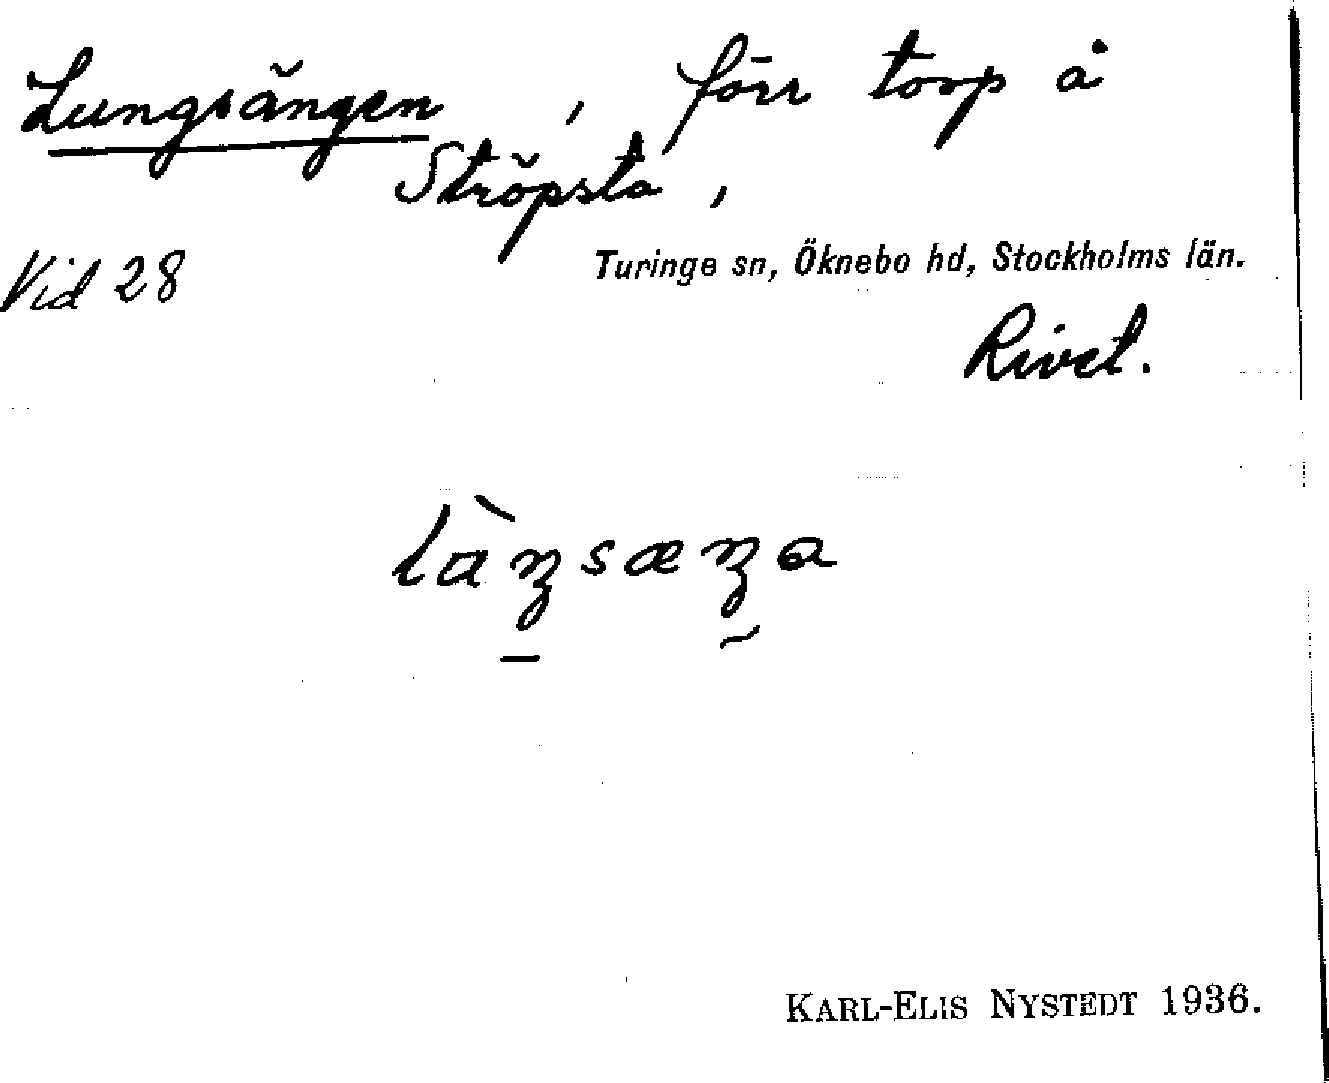 Lungsängen, förr torp å
Ströpsta,
Vid 28
Turinge sn, Öknebo hd, Stockholms län.
Rivet.
KARL-ELIS NYSTEDT 1936.